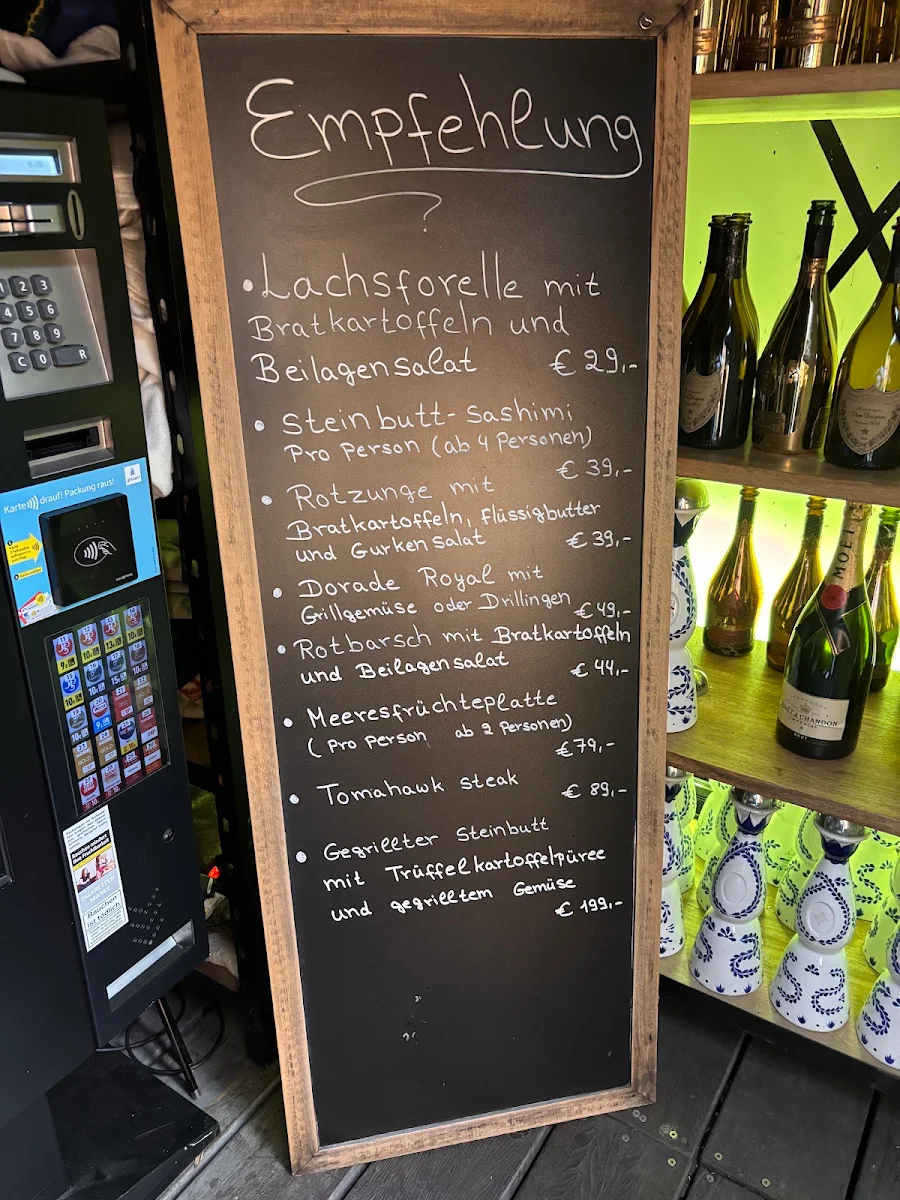 Empfehlung
• Lachsforelle mit
Bratkartoffeln und
Beilagensalat € 29,-
• Steinbutt-Sashimi
Pro Person (ab 4 Personen)
€ 39,-
• Rotzunge mit
Bratkartoffeln, flüssigbutter
und Gurkensalat € 39,-
• Dorade Royal mit
Grillgemüse oder Drillingen € 49,-
• Rotbarsch mit Bratkartoffeln
und Beilagensalat € 44,-
• Meeresfrüchteplatte
(Pro Person ab 2 Personen)
€ 79,-
• Tomahawk steak € 89,-
• Gegrillter Steinbutt
mit Trüffelkartoffelpüree
und gegrilltem Gemüse
€ 199,-
1 2 3
4 5 6
7 8 9
C 0 R
Karte drauf! Packung raus!
Rauchen
ist tödlich
MOËT
MOËT & CHANDON
Dom Pérignon